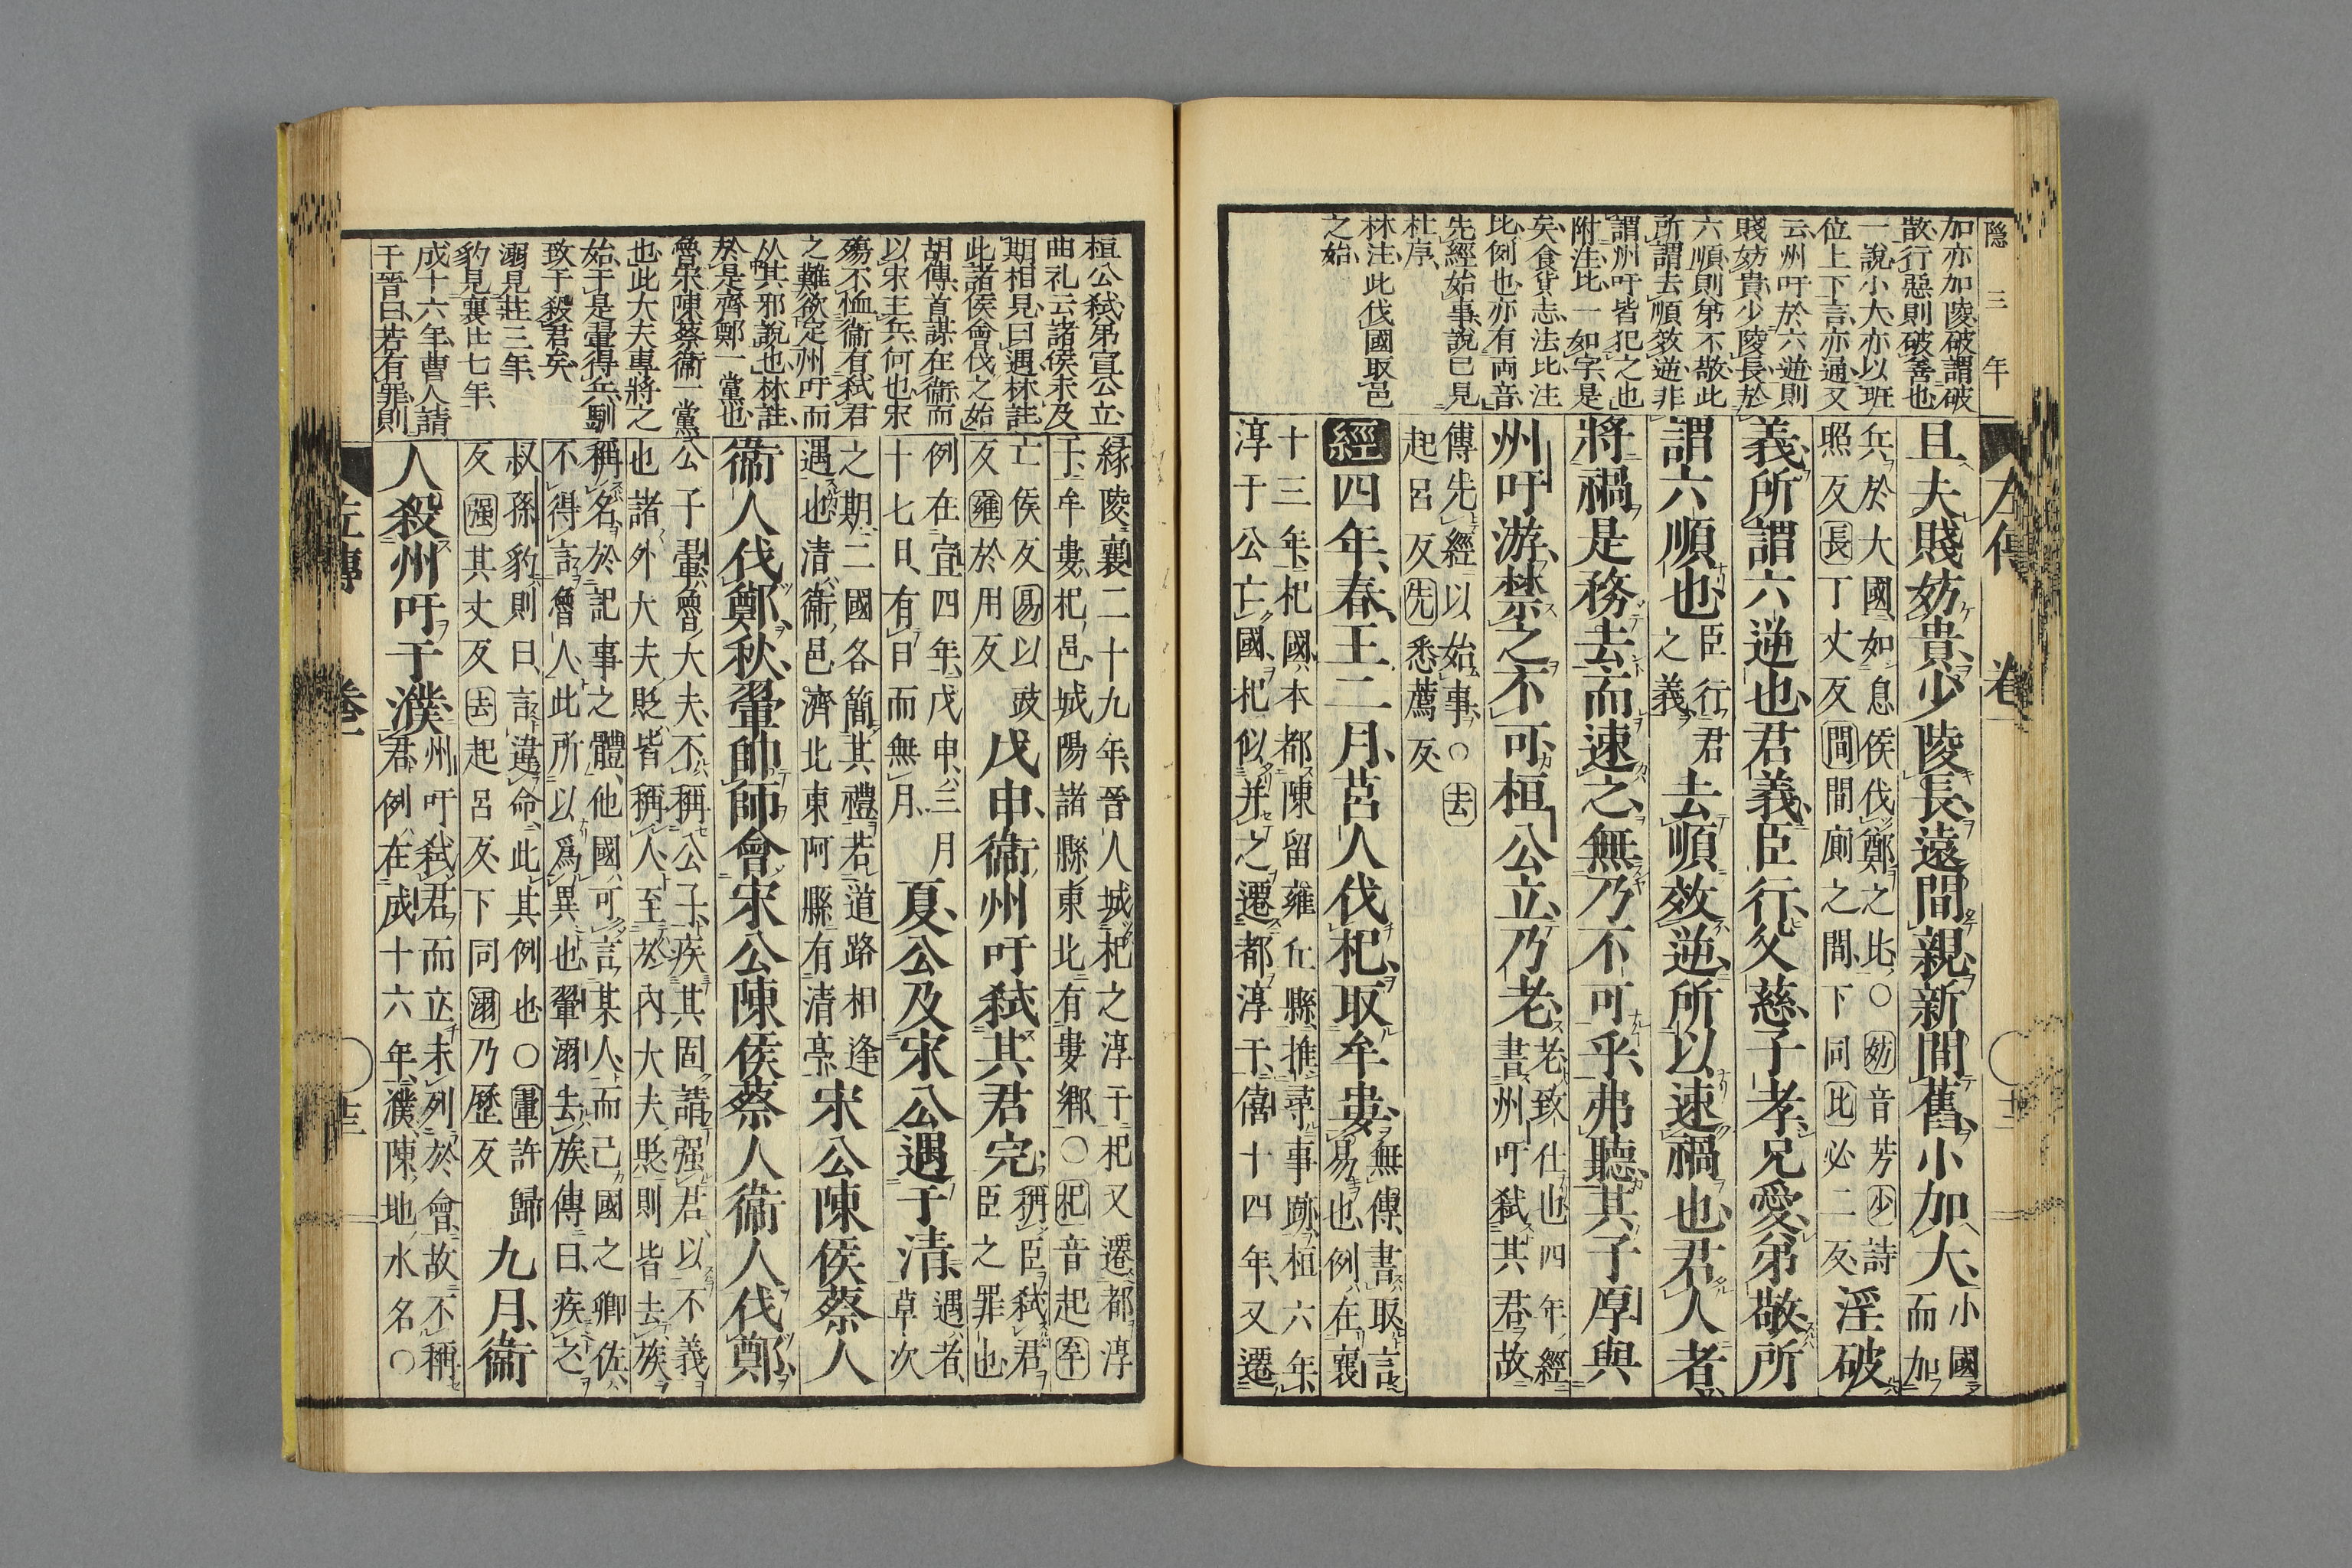 隐三年
加亦加陵破謂破
散行惡則破善也
一說小大亦以班
位上下言亦通又
云州吁於六逆則
賤妨貴少陵長於
六順則弟不敬此
所謂去順效逆非
謂州吁皆犯之也
附注比一如字是
矣食貨志法比注
比例也亦有両音
先經始事說已見
杜序
林注此伐國取邑
之始
左傳 卷一
且夫賤妨貴少陵長遠間親新間舊小加大小國而加
兵於大國如息侯伐鄭之比○妨音芳少詩
照反長丁丈反間間廁之間下同比必二反淫破
義所謂六逆也君義臣行父慈子孝兄愛弟敬所
謂六順也臣行君之義去順效逆所以速禍也君人者
將禍是務去而速之無乃不可乎弗聽其子厚與
州吁游禁之不可桓公立乃老老致仕也四年經書州吁弒其君故
傳先經以始事○去
起呂反先悉薦反
經四年春王二月莒人伐杞取牟婁無傳書取言易也例在襄
十三年杞國本都陳留雍丘縣推尋事跡桓六年
淳于公亡國杞似并之遷都淳于僖十四年又遷
桓公弒弟宣公立
曲礼云諸侯未及
期相見曰遇林註
此諸侯會伐之始
胡傳首謀在衞而
以宋主兵何也宋
殤不恤衞有弒君
之難欲定州吁而
从其邪說也林註
於是齊鄭一黨也
魯宋陳蔡衞一黨
也此大夫專將之
始于是翬得兵馴
致于殺君矣
溺見莊三年
豹見襄廿七年
成十六年曹人請
于晉曰若有罪則
緣陵襄二十九年晉人城杞之淳于杞又遷都淳
于牟婁杞邑城陽諸縣東北有婁鄉○杞音起牟
亡侯反易以豉
反雍於用反戊申衞州吁弒其君完稱臣弒君臣之罪也
例在宣四年戊申三月
十七日有日而無月夏公及宋公遇于清遇者草次
之期二國各簡其禮若道路相逢
遇也清衞邑濟北東阿縣有清亭宋公陳侯蔡人
衞人伐鄭秋翬帥師會宋公陳侯蔡人衞人伐鄭
公子翬魯大夫不稱公子疾其固請强君以不義
也諸外大夫貶皆稱人至於內大夫貶則皆去族
稱名於記事之體他國可言某人而己國之卿佐
不得言魯人此所以爲異也翬溺去族傳曰疾之
叔孫豹則曰言違命此其例也○翬許歸
反强其丈反去起呂反下同溺乃歷反九月衞
人殺州吁于濮州吁弒君而立未列於會故不稱
君例在成十六年濮陳地水名○
左傳 卷一 十三